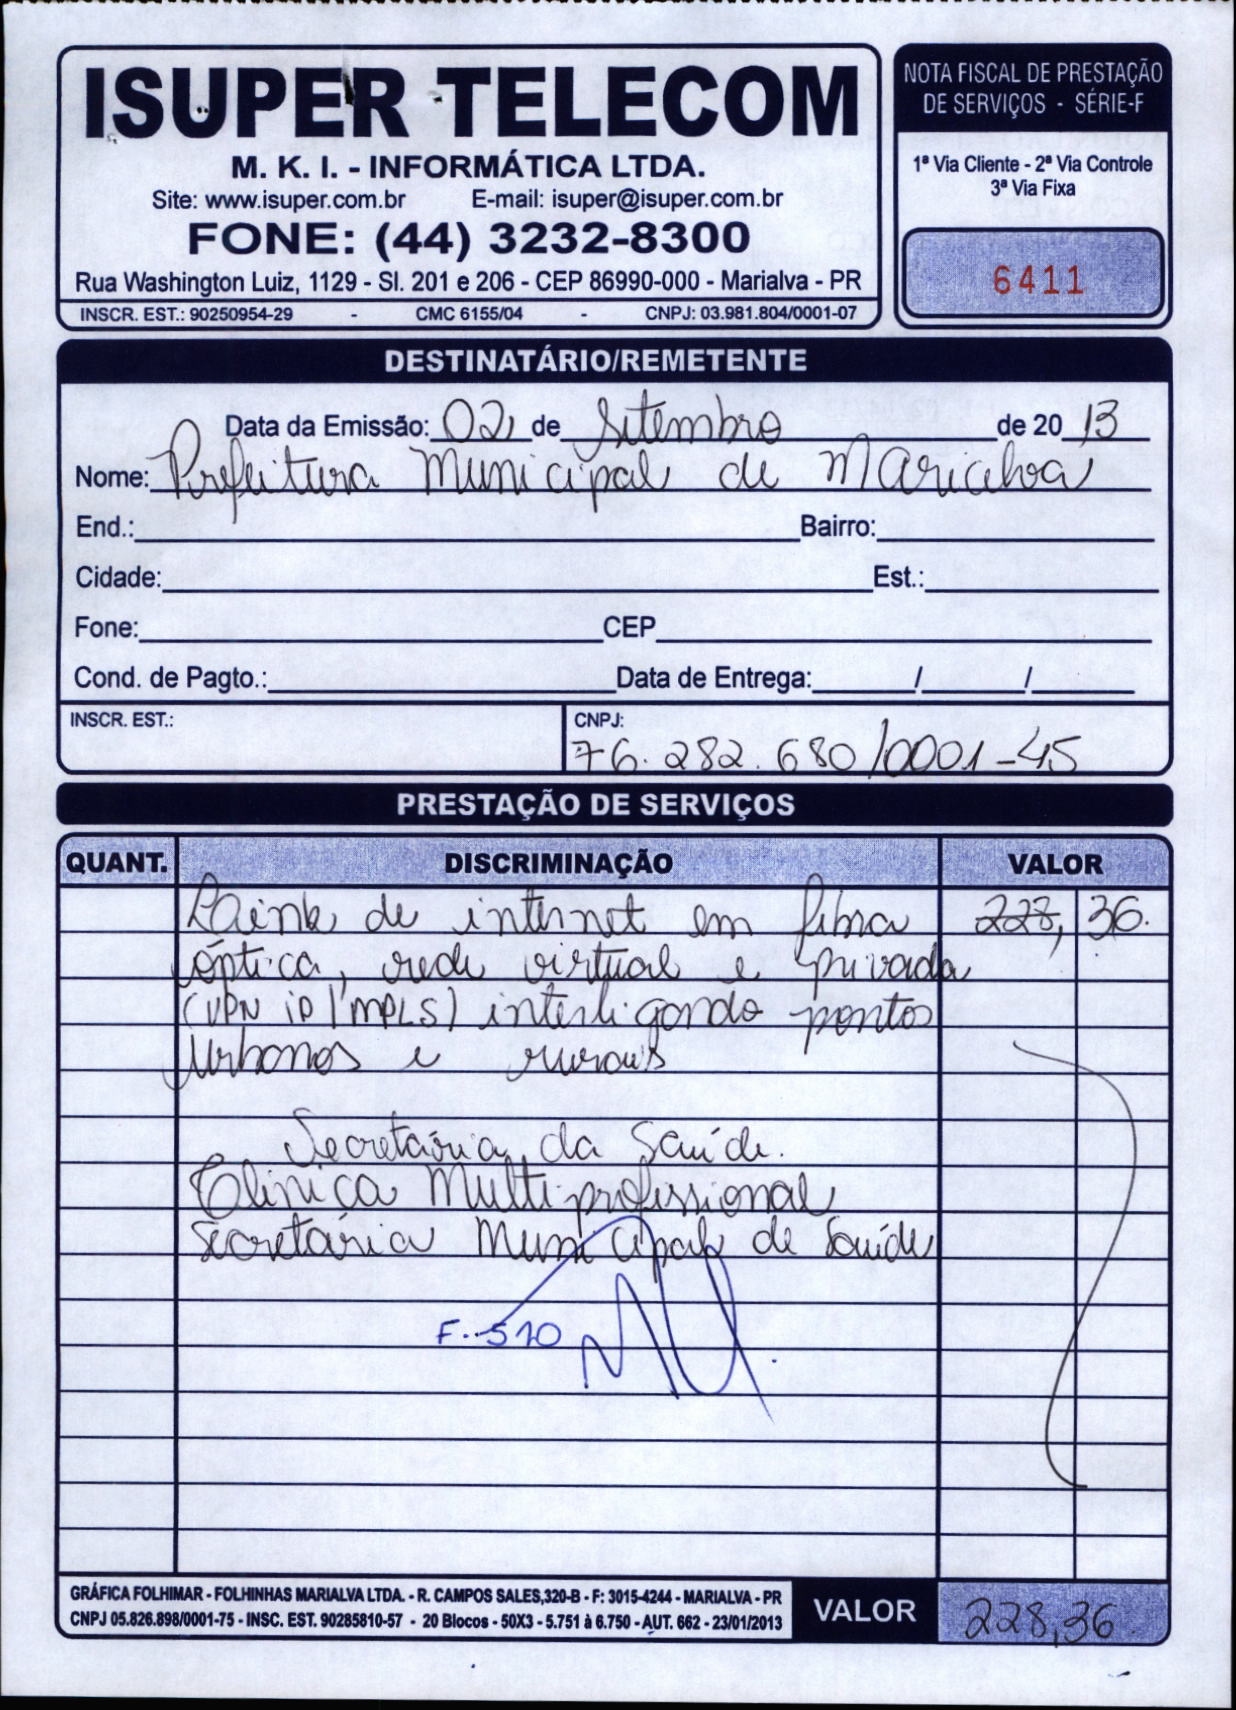 ISUPER TELECOM
M. K. I. - INFORMÁTICA LTDA.
Site: www.isuper.com.br E-mail: isuper@isuper.com.br
FONE: (44) 3232-8300
Rua Washington Luiz, 1129 - Sl. 201 e 206 - CEP 86990-000 - Marialva - PR
INSCR. EST.: 90250954-29 - CMC 6155/04 - CNPJ: 03.981.804/0001-07
NOTA FISCAL DE PRESTAÇÃO
DE SERVIÇOS - SÉRIE-F
1ª Via Cliente - 2ª Via Controle
3ª Via Fixa
6411
DESTINATÁRIO/REMETENTE
Data da Emissão: 02 de Setembro de 20 13
Nome: Prefeitura Municipal de Marialva
End.: Bairro:
Cidade: Est.:
Fone: CEP
Cond. de Pagto.: Data de Entrega: / /
INSCR. EST.: CNPJ:
76.282.680/0001-45
PRESTAÇÃO DE SERVIÇOS
QUANT. DISCRIMINAÇÃO VALOR
de internet em fibra 228,36.
óptica, rede virtual e privada
(VPN iP/MPLS) interligando pontos
Urbanos e rurais
Secretária da Saúde.
Clinica Multiprofissional
Secretária Municipal de Saúde
F..510
GRÁFICA FOLHIMAR - FOLHINHAS MARIALVA LTDA. - R. CAMPOS SALES,320-B - F: 3015-4244 - MARIALVA - PR
CNPJ 05.826.898/0001-75 - INSC. EST. 90285810-57 - 20 Blocos - 50X3 - 5.751 à 6.750 - AUT. 662 - 23/01/2013
VALOR 228,36